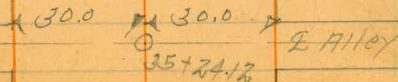 30.0 30.0
℄ Alley
35+24.12